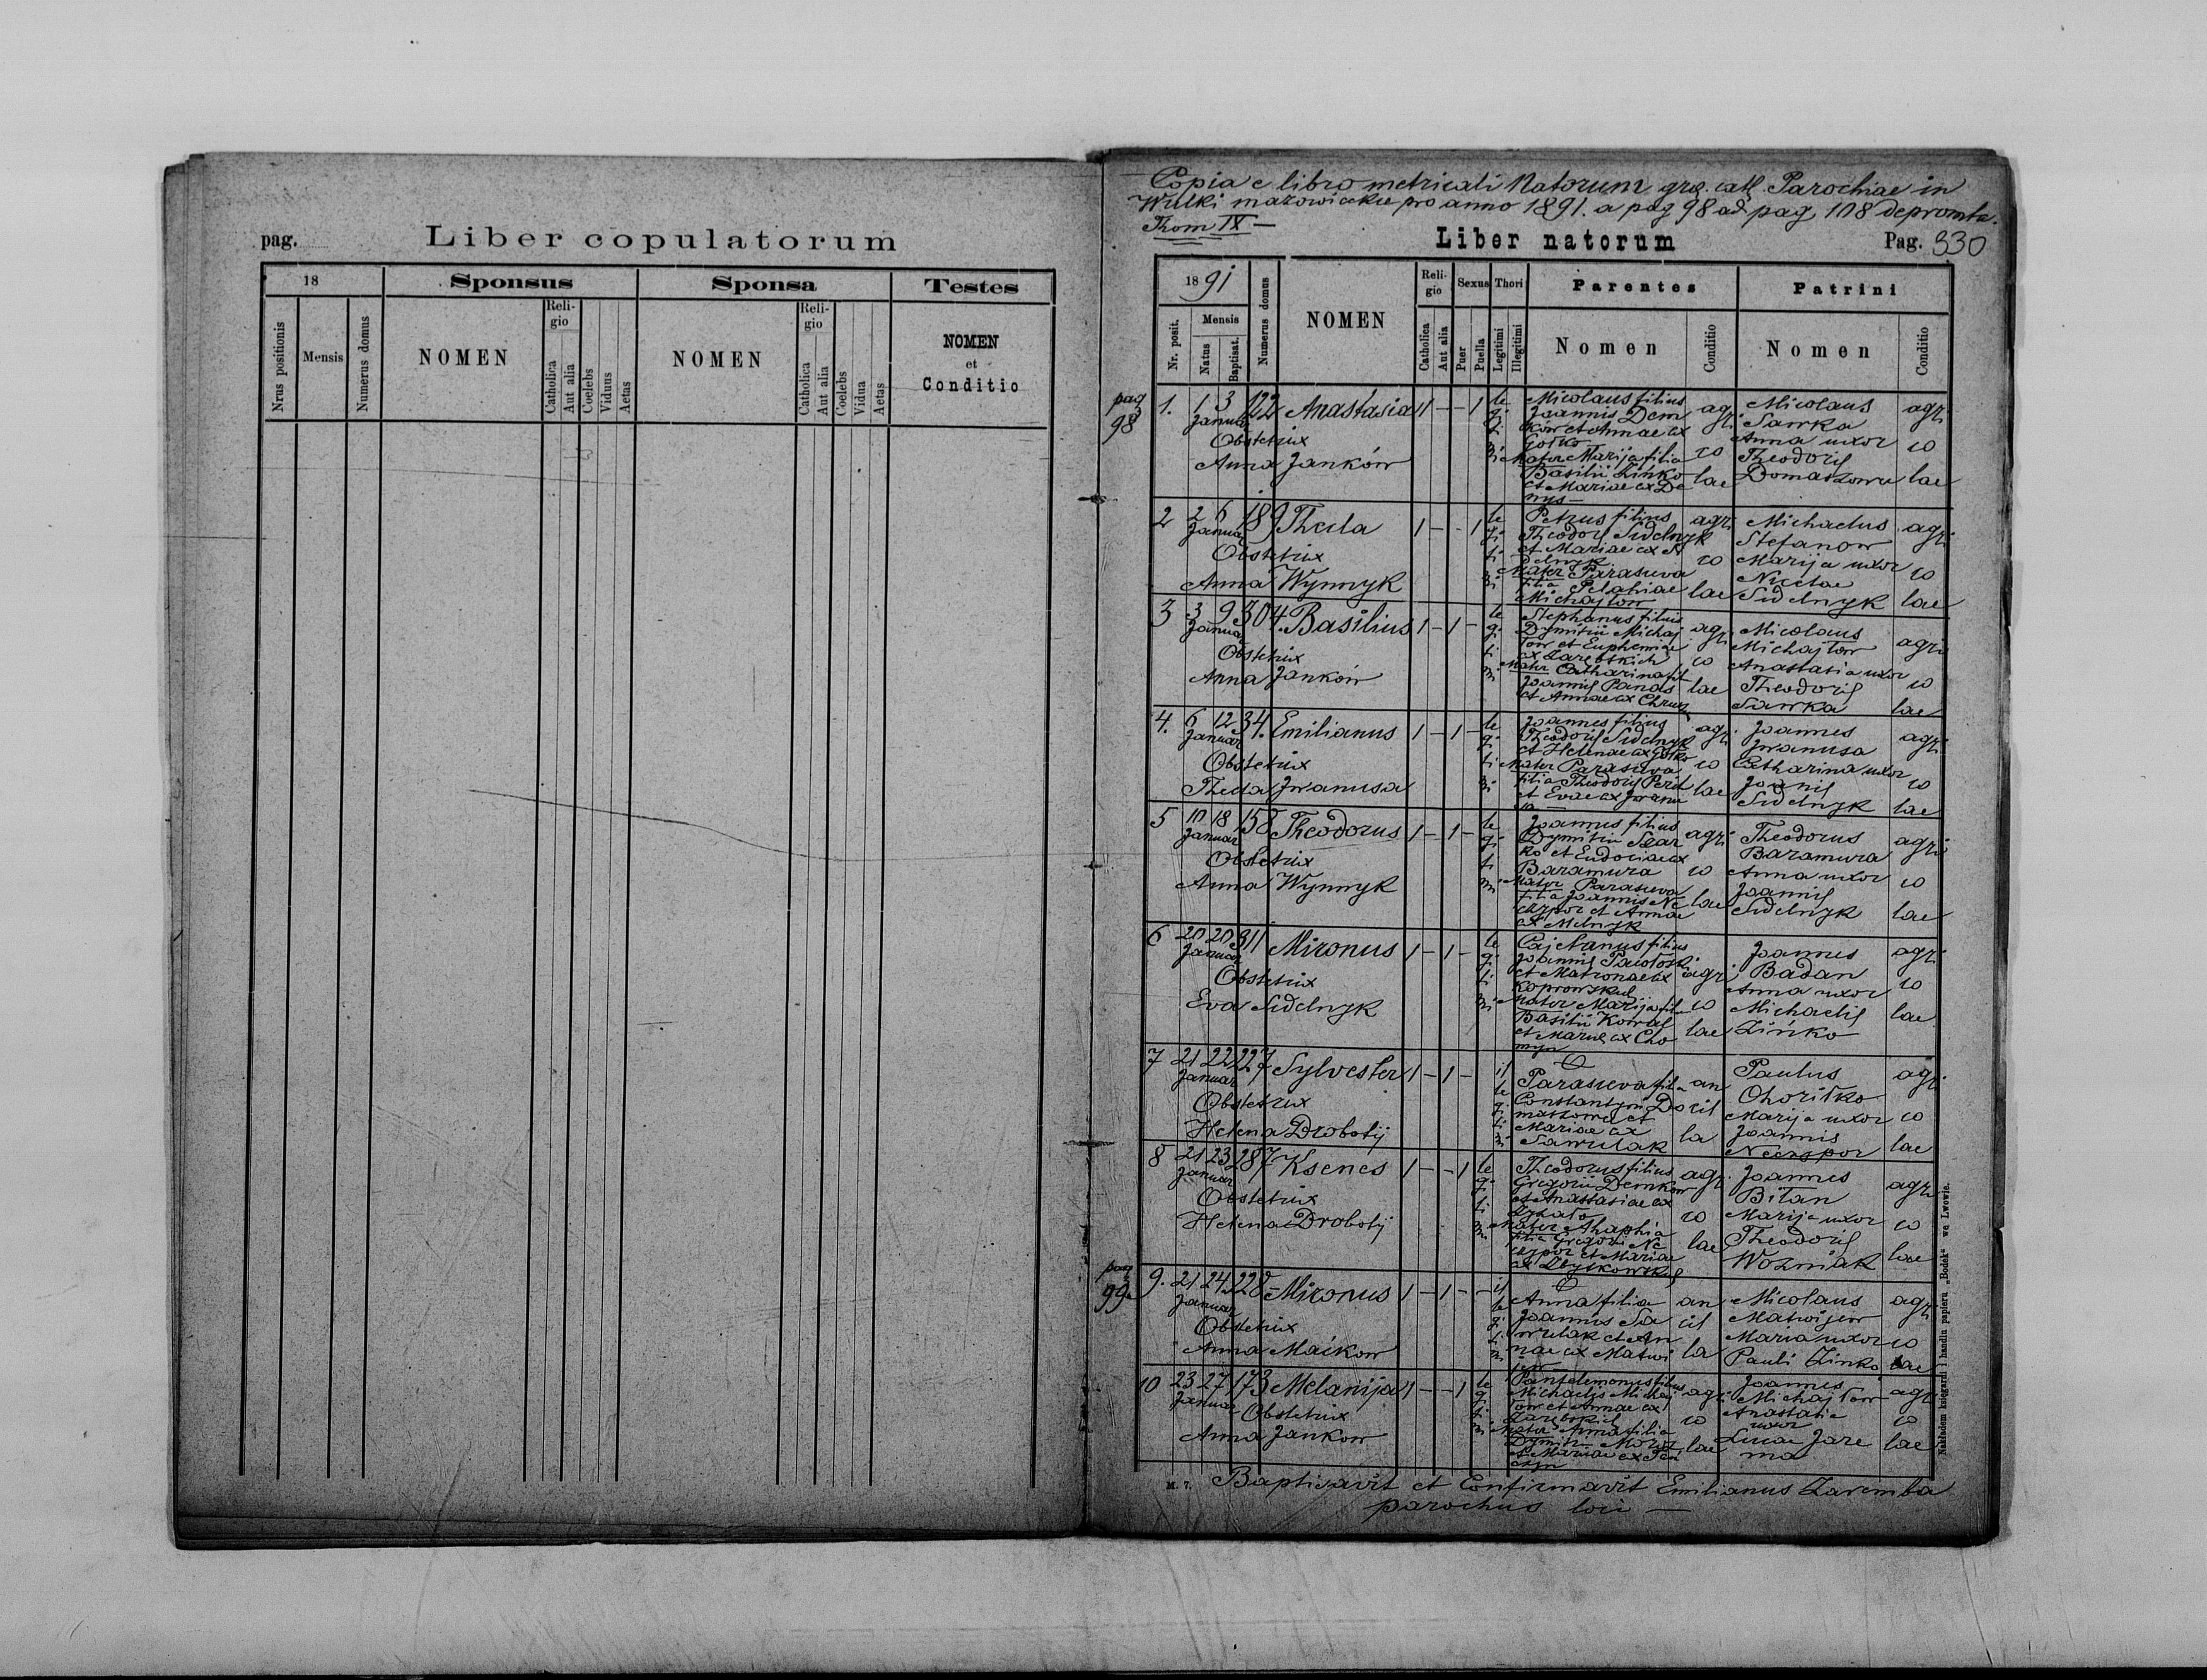 pag.
Liber copulatorum
18
Sponsus
Sponsa
Testes
Nrus positionis
Mensis
Numerus domus
NOMEN
Religio
Catholica
Aut alia
Coelebs
Viduus
Aetas
NOMEN
Religio
Catholica
Aut alia
Coelebs
Vidua
Aetas
NOMEN
et
Conditio
Copia e libro metricali Natorum gr. cath. Parochiae in
Wulki mazowieckie pro anno 1891. a pag 98 ad pag 108 depromta.
Thom IX —
Liber natorum
Pag. 330
1891
Nr. posit.
Mensis
Natus
Baptisat.
Numerus domus
NOMEN
Religio
Catholica
Aut alia
Sexus
Puer
Puella
Thori
Legitimi
Illegitimi
Parentes
Nomen
Conditio
Patrini
Nomen
Conditio
pag
98
1. 1 3 122 Anastasia 1 — — 1
Januar
Obstetrix
Anna Janków
legitimi
Micolaus filius
Joannis Dem
ków et Annae ex
Gołko
Mater Marija filia
Basilii Zińko
et Mariae ex De
nys —
agricolae
Micolaus
Sawka
Anna uxor
Theodoris
Domaszowa
agricolae
2 2 6 189 Thecla 1 — — 1
Januar
Obstetrix
Anna Wynnyk
legitimi
Petrus filius
Theodoris Sidelnyk
et Mariae ex
Mater Parasceva
filia Pelahiae
Michajłow
agricolae
Michaelus
Stefanow
Marija uxor
Nicetae
Sidelnyk
agricolae
3 3 9 304. Basilius 1 — 1 —
Januar
Obstetrix
Anna Janków
legitimi
Stephanus filius
Dymitrii Michaj
łow et Euphemiae
ex Zarębskich
Mater Catharina fil
Joannis Panas
et Annae ex
agricolae
Micolaus
Michajłow
Anastasia uxor
Theodoris
Sawka
agricolae
4. 6 12 34. Emilianus 1 — 1 —
Januar
Obstetrix
Thecla Iwanusa
legitimi
Joannes filius
Theodoris Sidelnyk
et Helenae ex Gołko
Mater Parasceva
filia Theodoris
et Evae ex Iwanu
sa
agricolae
Joannes
Iwanusa
Catharina uxor
Joanis
Sidelnyk
agricolae
5 10 18 158 Theodorus 1 — 1 —
Januar
Obstetrix
Anna Wynnyk
legitimi
Joannes filius
Dymitrii
ko et Eudociae ex
Baramura
Mater Parasceva
filia Joannis Ne
czypor et Annae
ex Melnyk
agricolae
Theodorus
Baramura
Anna uxor
Joannis
Sidelnyk
agricolae
6 20 20 311 Mironus 1 — 1 —
Januar
Obstetrix
Eva Sidelnyk
legitimi
Cajetanus filius
Joannis
et Matronae ex
Mater Marija fil
Basilii Kowal
et Mariae ex Cho
myn
agricolae
Joannes
Badan
Anna uxor
Michaelis
Zińko
agricolae
7 21 22 227 Sylvester 1 — 1 —
Januar
Obstetrix
Helena Drobotij
illegitimi
Parasceva filia
Constantyni Do
maszowa et
Mariae ex
Sawulak
ancilla
Paulus
Choriłko
Marija uxor
Joannis
Neczypor
agricolae
8 21 23 287 Ksenes 1 — — 1
Januar
Obstetrix
Helena Drobotij
legitimi
Theodorus filius
Gregorii Demkow
et Anastasiae ex
Mater Ahaphia
filia Gregorii Ne
czypor et Mariae
ex
agricolae
Joannes
Biłan
Marija uxor
Theodoris
Wozniak
agricolae
pag
99
9. 21 24 228 Mironus 1 — 1 —
Januar
Obstetrix
Anna Maikow
illegitimi
Anna filia
Joannis Sa
wulak et An
nae ex Matwi
jew
ancilla
Micolaus
Matwijew
Maria uxor
Pauli Zinko
agricolae
10 23 27 173 Melanija 1 — — 1
Januar
Obstetrix
Anna Jankow
legitimi
Pantelemonus filius
Michaelis Michaj
łow et Annae ex
Zarębskich
Mater Anna filia
Dymitri Moroz
et Mariae ex
agricolae
Joannes
Michajłow
Anastasia
uxor
Lucae Jare
ma
agricolae
M. 7.
Baptisavit et Confirmavit Emilianus Zaremba
parochus loci —
Nakładem księgarni i handlu papieru „Bodek“ we Lwowie.